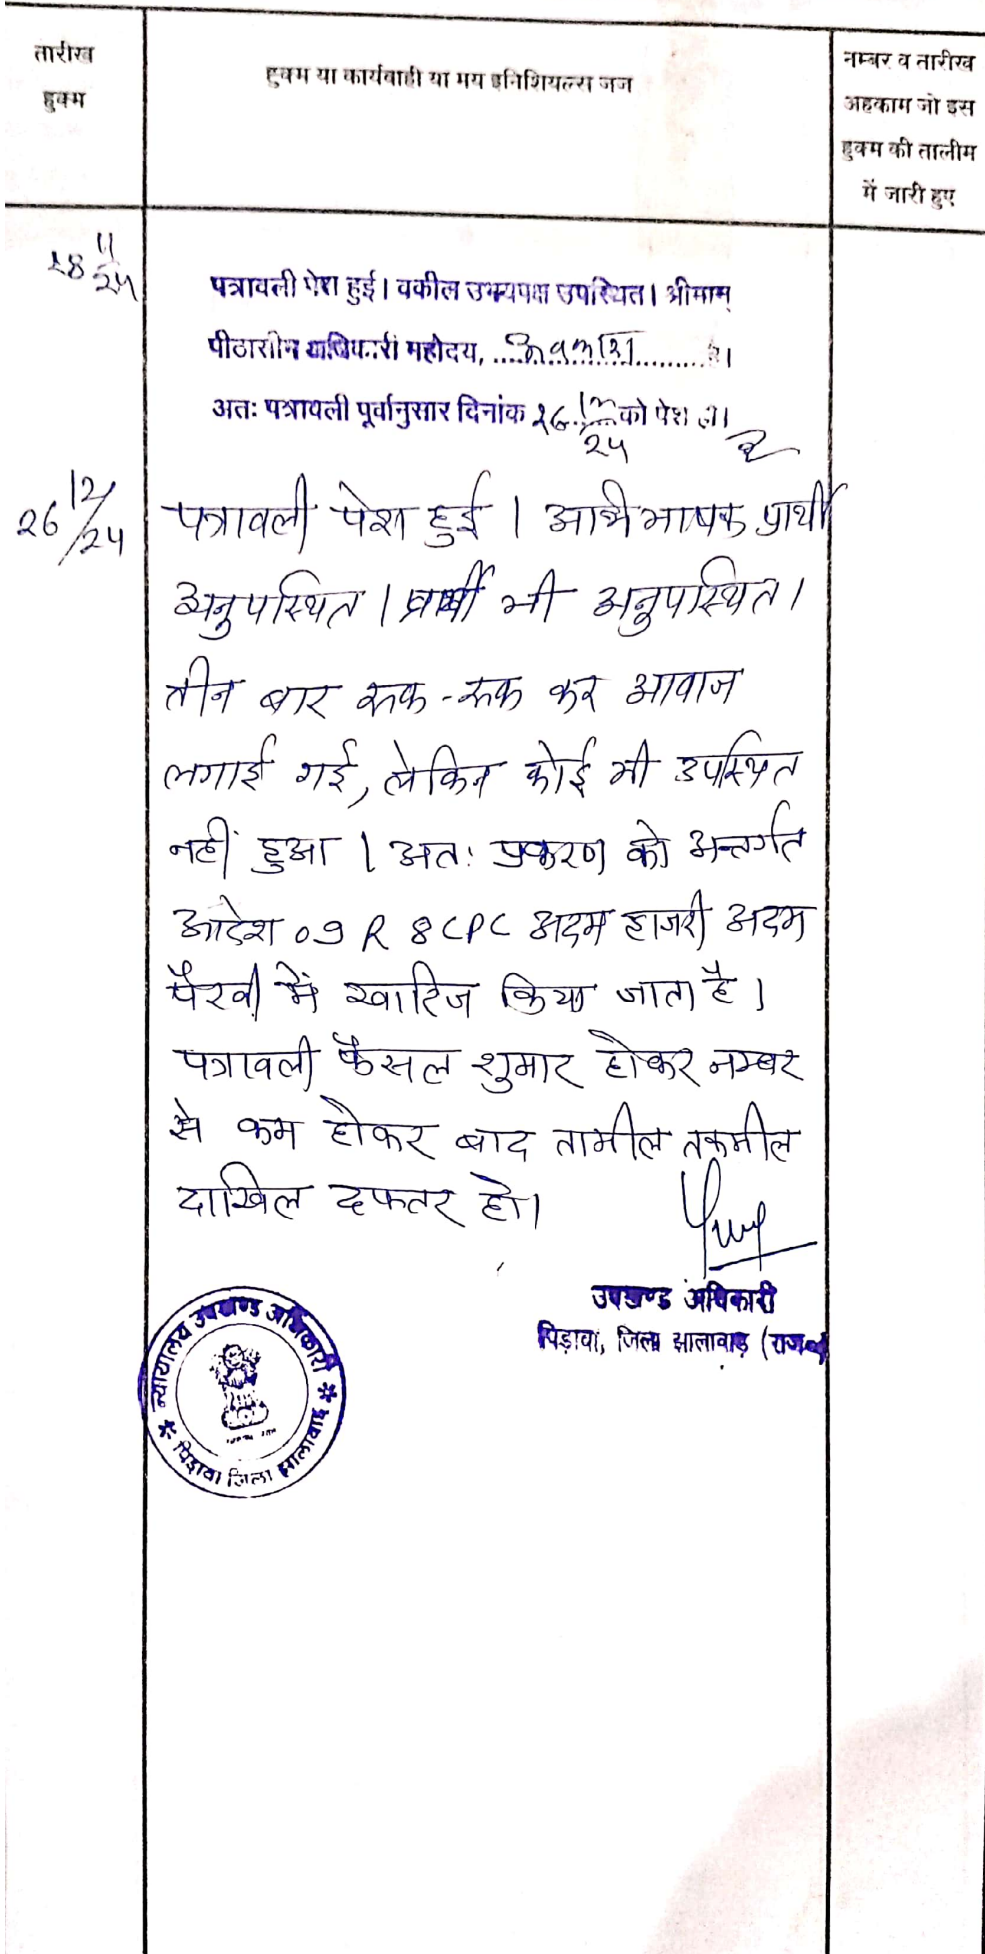 तारीख
हुक्म
हुक्म या कार्यवाही या मय इनिशियल्स जज
नम्बर व तारीख
अहकाम जो इस
हुक्म की तालीम
में जारी हुए
28 11/24
पत्रावली पेश हुई। वकील उभयपक्ष उपस्थित। श्रीमाम्
पीठासीन अधिकारी महोदय, ....अवकाश.......... है।
अतः पत्रावली पूर्वानुसार दिनांक 26.12/24 को पेश हो।
26 12/24
पत्रावली पेश हुई । अभिभाषक प्रार्थी
अनुपस्थित । प्रार्थी भी अनुपस्थित।
तीन बार रूक-रूक कर आवाज
लगाई गई, लेकिन कोई भी उपस्थित
नहीं हुआ । अतः प्रकरण को अन्तर्गत
आदेश 09 R 8 CPC अदम हाजरी अदम
पैरवी में खारिज किया जाता है ।
पत्रावली फैसल शुमार होकर नम्बर
से कम होकर बाद तामील तकमील
दाखिल दफतर हो।
उपखण्ड अधिकारी
पिड़ावा, जिला झालावाड़ (राज०)
न्यायालय उपखण्ड अधिकारी
पिड़ावा जिला झालावाड़